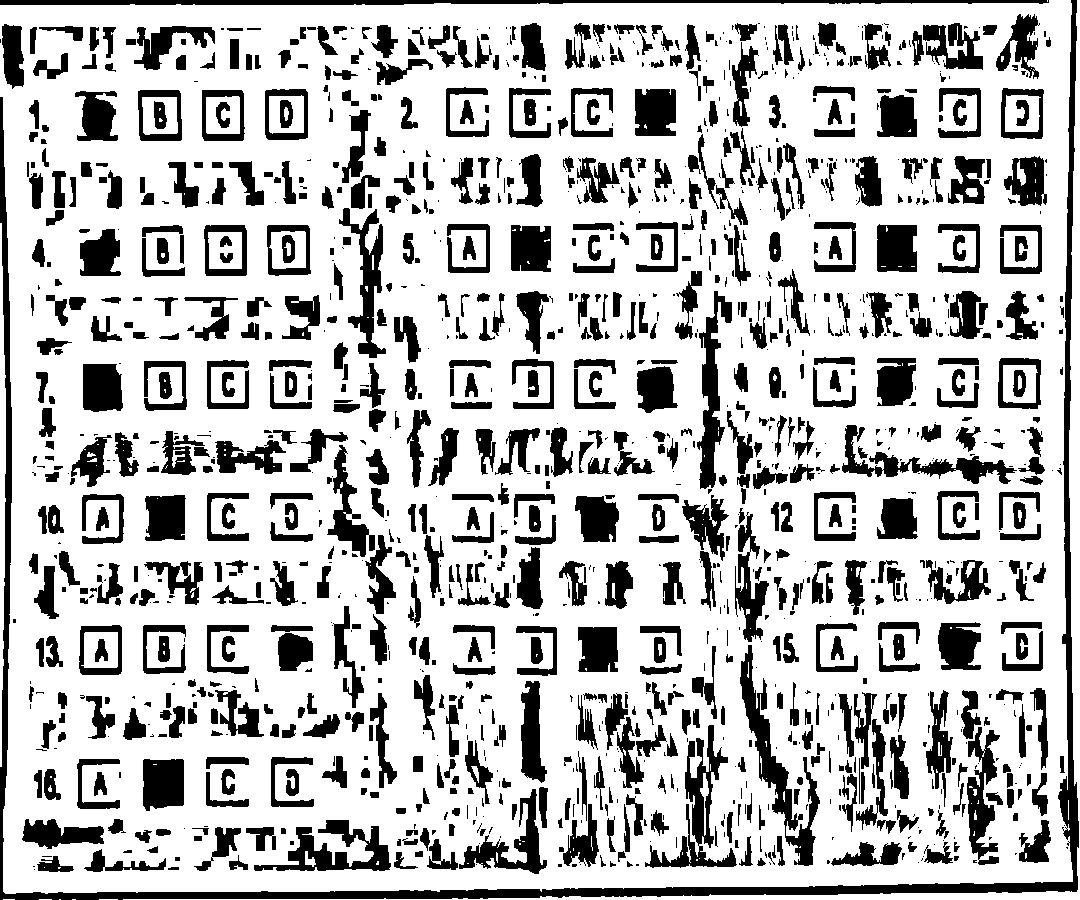 1. B C D 2. A B C 3. A C D
4. B C D 5. A C D 6. A C D
7. B C D 8. A B C 9. A C D
10. A C D 11. A B D 12 A C D
13. A B C 14. A B D 15. A B D
16. A C D